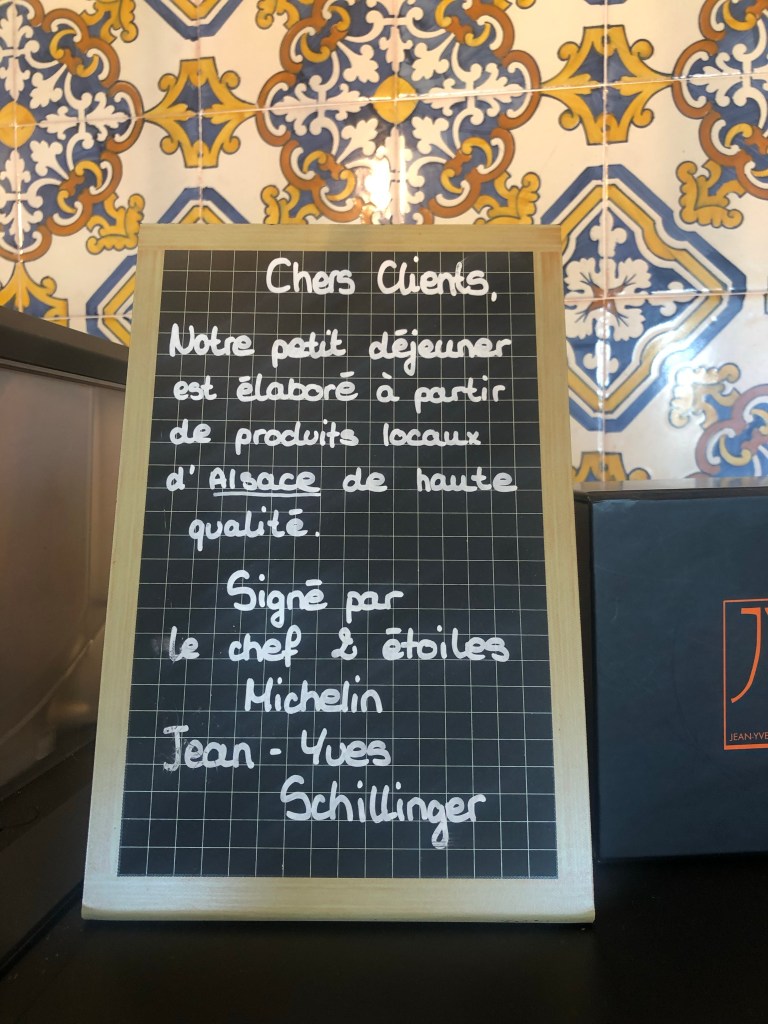 Chers Clients,
Notre petit déjeuner
est élaboré à partir
de produits locaux
d'Alsace de haute
qualité.
Signé par
le chef 2 étoiles
Michelin
Jean - Yves
Schillinger
JY
JEAN-YVE